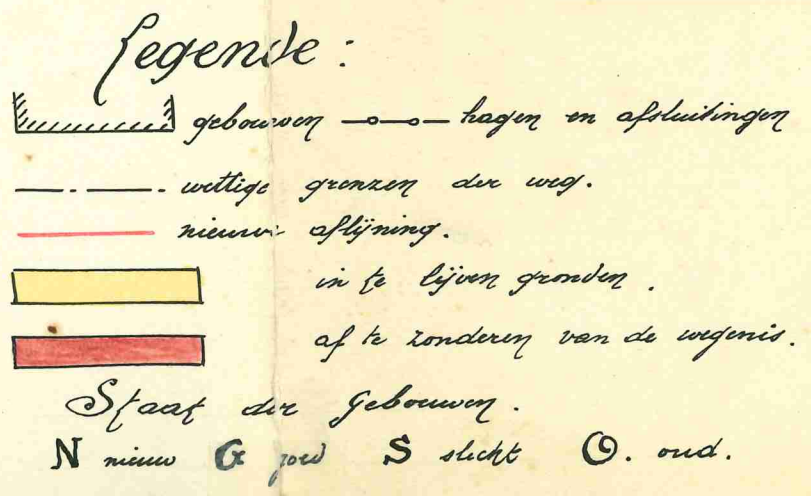 Legende :
gebouwen hagen en afsluitingen
wettige grenzen der weg.
nieuwe aflijning.
in te lijven gronden .
af te zonderen van de wegenis.
Staat der Gebouwen .
N nieuw G goed S slecht O. oud.